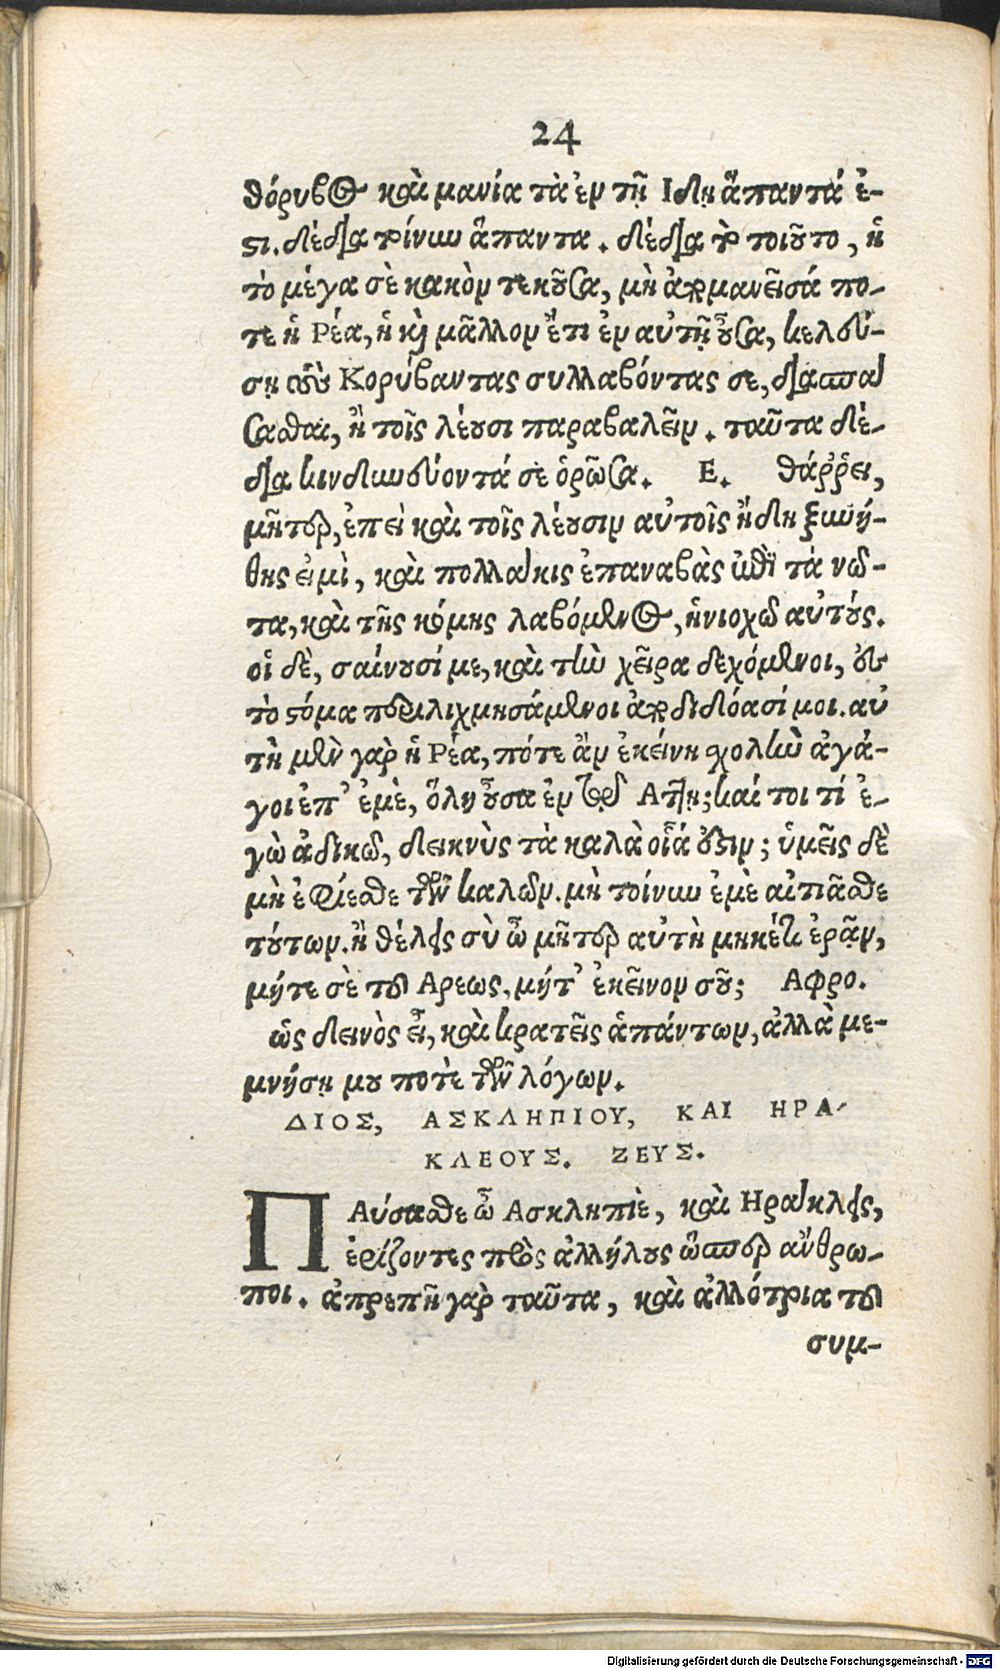 24
θόρυβος καὶ μανία τὰ ἐν τῇ Ιδῃ ἅπαντά ἐ-
στι. δέδια τοίνυν ἅπαντα. δέδια τὸ τοιοῦτο, ἡ
τὸ μέγα σὲ κακὸν τεκοῦσα, μὴ ἀπομανεῖσά πο-
τε ἡ Ρέα, ἢ καὶ μᾶλλον ἔτι ἐν αὐτῇ οὖσα, κελεύ-
σῃ τοὺς Κορύβαντας συλλαβόντας σε, διασπά
σασθαι, ἢ τοῖς λέουσι παραβαλεῖν. ταῦτα δέ-
δια κινδυνεύοντά σε ὁρῶσα. Ε. θάῤῥει,
μῆτερ, ἐπεὶ καὶ τοῖς λέουσιν αὐτοῖς ἤδη ξυνή-
θης εἰμὶ, καὶ πολλάκις ἐπαναβὰς ἐπὶ τὰ νῶ-
τα, καὶ τῆς κόμης λαβόμενος, ἡνιοχῶ αὐτούς.
οἱ δὲ, σαίνουσί με, καὶ τὴν χεῖρα δεχόμενοι, ἐς
τὸ στόμα περιλιχμησάμενοι ἀποδιδόασί μοι. αὐ
τὴ μὲν γὰρ ἡ Ρέα, πότε ἂν ἐκείνη σχολὴν ἀγά-
γοι ἐπ' ἐμὲ, ὅλη οὖσα ἐν τῷ Αττῃ; καί τοι τί ἐ-
γὼ ἀδικῶ, δεικνὺς τὰ καλὰ οἷά ἐστιν; ὑμεῖς δὲ
μὴ ἐφίεσθε τῶν καλῶν. μὴ τοίνυν ἐμὲ αἰτιᾶσθε
τούτων. ἢ θέλεις σὺ ὦ μῆτερ αὐτὴ μηκέτι ἐρᾷν,
μήτε σὲ τοῦ Αρεως, μήτ' ἐκεῖνον σοῦ; Αφρο.
ὡς δεινὸς εἶ, καὶ κρατεῖς ἁπάντων, ἀλλὰ με-
μνήσῃ μου ποτὲ τῶν λόγων.
ΔΙΟΣ, ΑΣΚΛΗΠΙΟΥ, ΚΑΙ ΗΡΑ-
ΚΛΕΟΥΣ. ΖΕΥΣ.
ΠΑύσασθε ὦ Ασκληπιὲ, καὶ Ηράκλεις,
ἐρίζοντες πρὸς ἀλλήλους ὥσπερ ἄνθρω-
ποι. ἀπρεπῆ γὰρ ταῦτα, καὶ ἀλλότρια τοῦ
συμ-
Digitalisierung gefördert durch die Deutsche Forschungsgemeinschaft - DFG